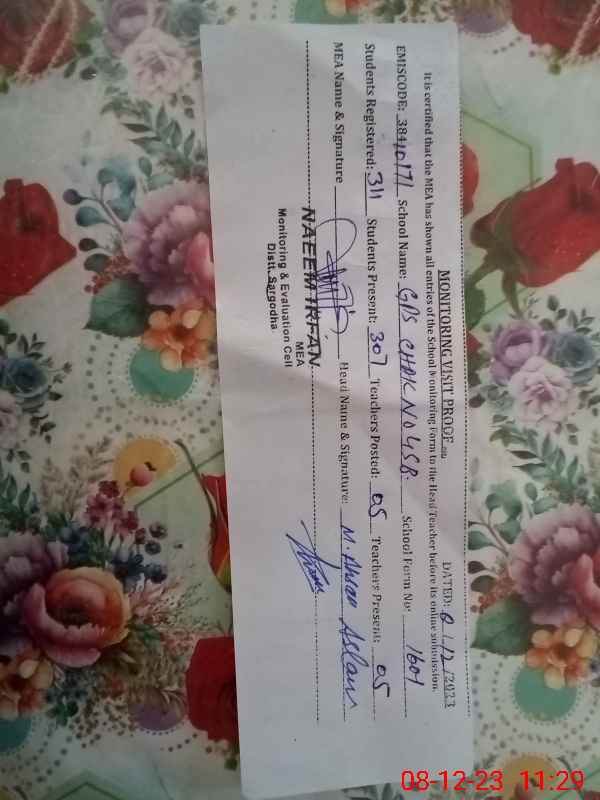 MONITORING VISIT PROOF
DATED: 8/12/2023
It is certified that the MEA has shown all entries of the School Monitoring Form to the Head Teacher before its online submission.
EMISCODE: 38440171 School Name: GPS CHAK NO 45B. School Form No: 1601
Students Registered: 311 Students Present: 307 Teachers Posted: 05 Teachers Present: 05
MEA Name & Signature Head Name & Signature: M. Ahsan Aslam
NAEEM IRFAN
MEA
Monitoring & Evaluation Cell
Distt. Sargodha.
08-12-23 11:29